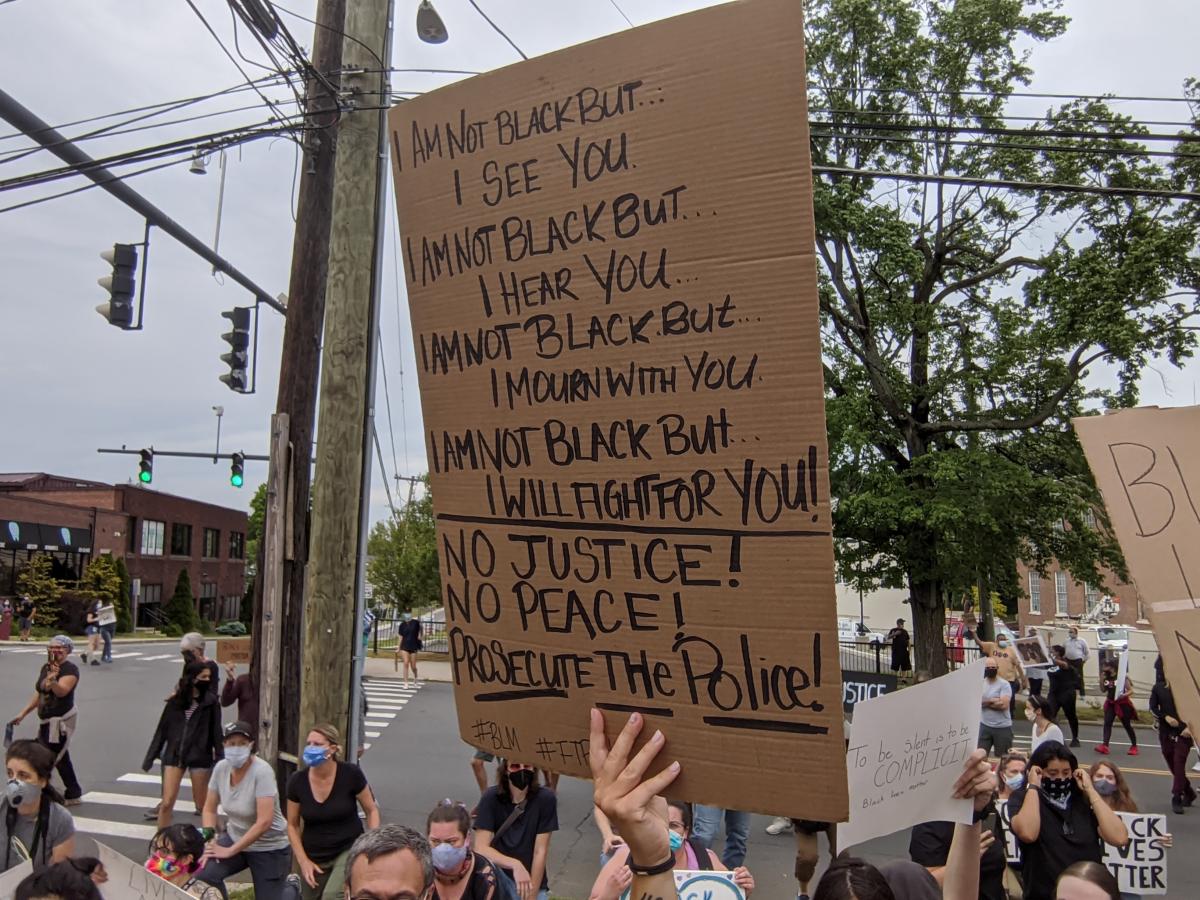 I AM NOT BLACK BUT...
I SEE YOU.
I AM NOT BLACK BUT....
I HEAR YOU...
I AM NOT BLACK. But...
I MOURN WITH YOU.
I AM NOT BLACK But...
I WILL FIGHT FOR YOU!
NO JUSTICE!
NO PEACE!
PROSECUTE THe Police!
#BLM #FTP
To be silent is to be
COMPLICIT
Black lives matter